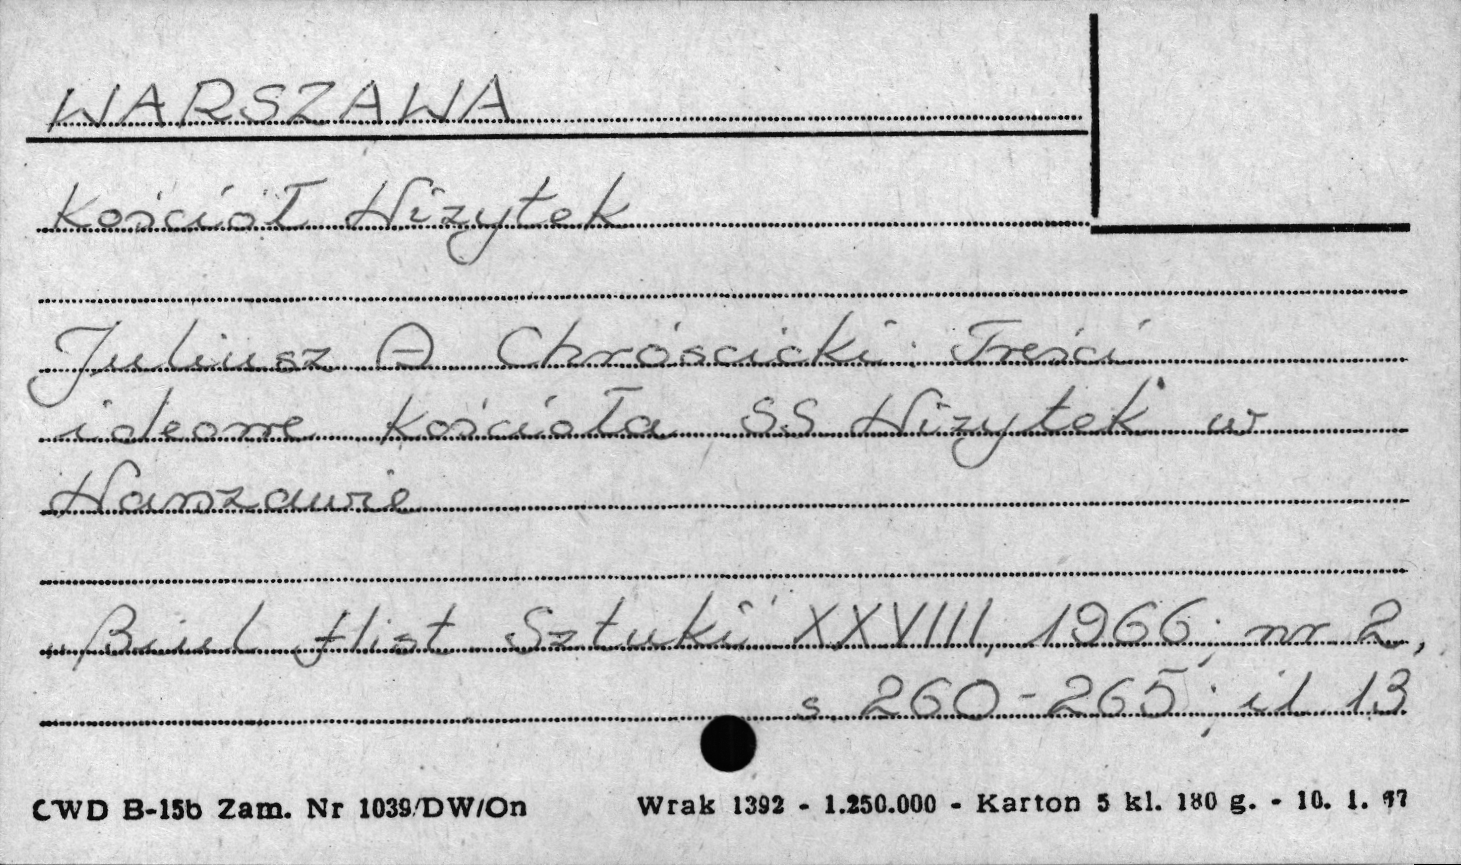 WARSZAWA
Kościół Wizytek
Juliusz A Chrościcki: Treści
ideowe kościoła SS Wizytek w
Warszawie
„Biul Hist Sztuki" XXVIII, 1966; nr 2,
s. 260-265; il 13
CWD B-15b Zam. Nr 1039/DW/On Wrak 1392 - 1.250.000 - Karton 5 kl. 180 g. - 10. 1.